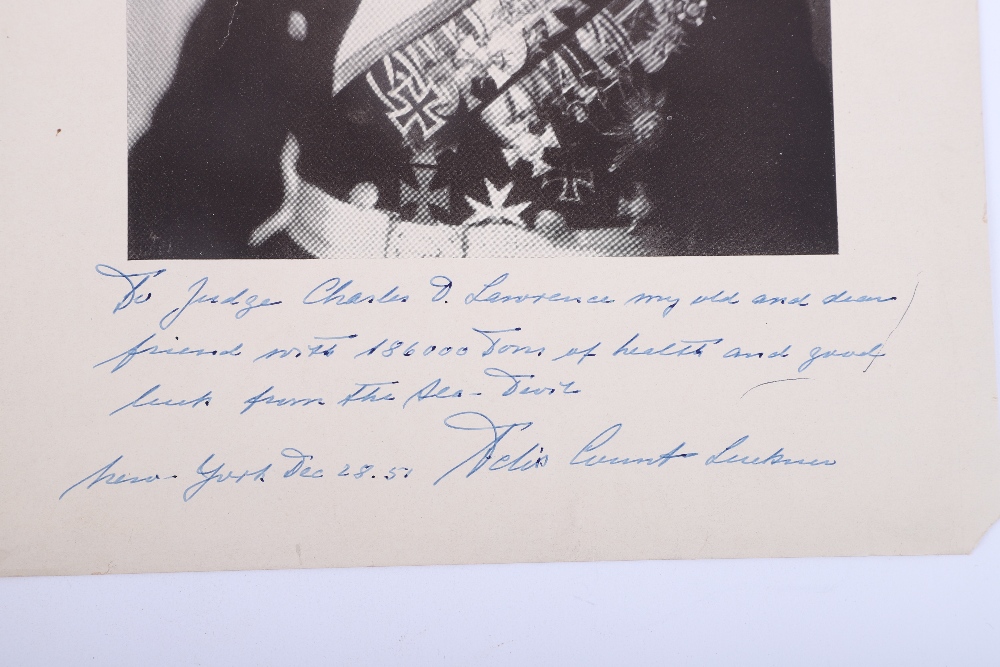 To Judge Charles D. Lawrence my old and dear
friend with 186000 Tons of health and good
luck from the Sea-Devil
New-York Dec 28.51 Felix Count Luckner